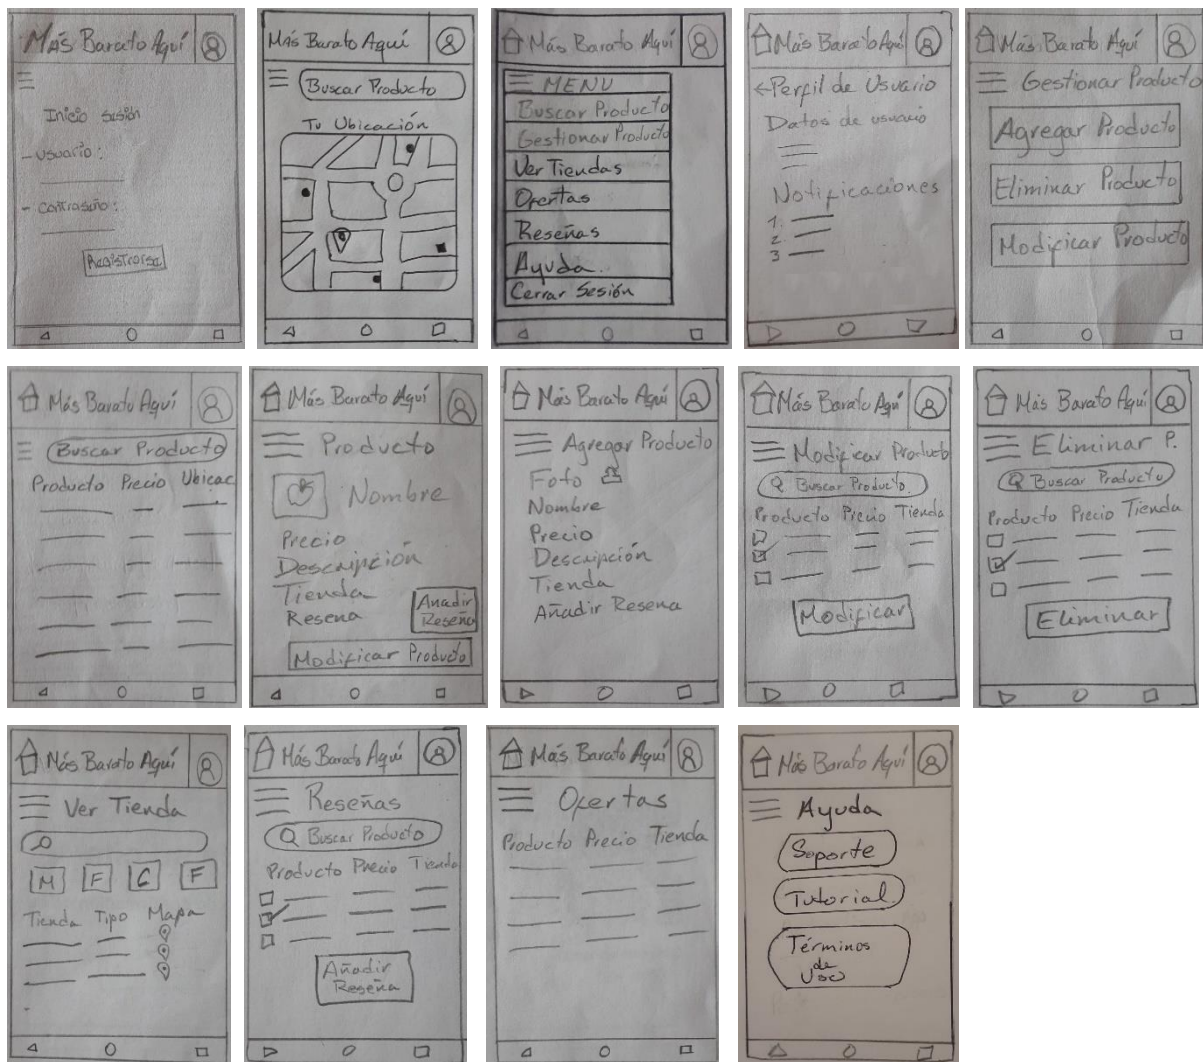 Más Barato Aquí
Inicio sesión
- Usuario:
- Contraseña:
Registrarse
Más Barato Aquí
Buscar Producto
Tu Ubicación
Más Barato Aquí
MENU
Buscar Producto
Gestionar Producto
Ver Tiendas
Ofertas
Reseñas
Ayuda
Cerrar Sesión
Más Barato Aquí
Perfil de Usuario
Datos de usuario
Notificaciones
1.
2.
3
Más Barato Aquí
Gestionar Producto
Agregar Producto
Eliminar Producto
Modificar Producto
Más Barato Aquí
Buscar Producto
Producto Precio Ubicac
Más Barato Aquí
Producto
Nombre
Precio
Descripción
Tienda
Resena
Anadir
Reseña
Modificar Producto
Más Barato Aquí
Agregar Producto
Foto
Nombre
Precio
Descripción
Tienda
Añadir Resena
Más Barato Aquí
Modificar Producto
Buscar Producto
Producto Precio Tienda
Modificar
Más Barato Aquí
Eliminar P.
Buscar Producto
Producto Precio Tienda
Eliminar
Más Barato Aquí
Ver Tienda
M F C F
Tienda Tipo Mapa
Más Barato Aquí
Reseñas
Buscar Producto
Producto Precio Tienda
Añadir
Reseña
Más Barato Aquí
Ofertas
Producto Precio Tienda
Más Barato Aquí
Ayuda
Soporte
Tutorial
Términos
de
Uso